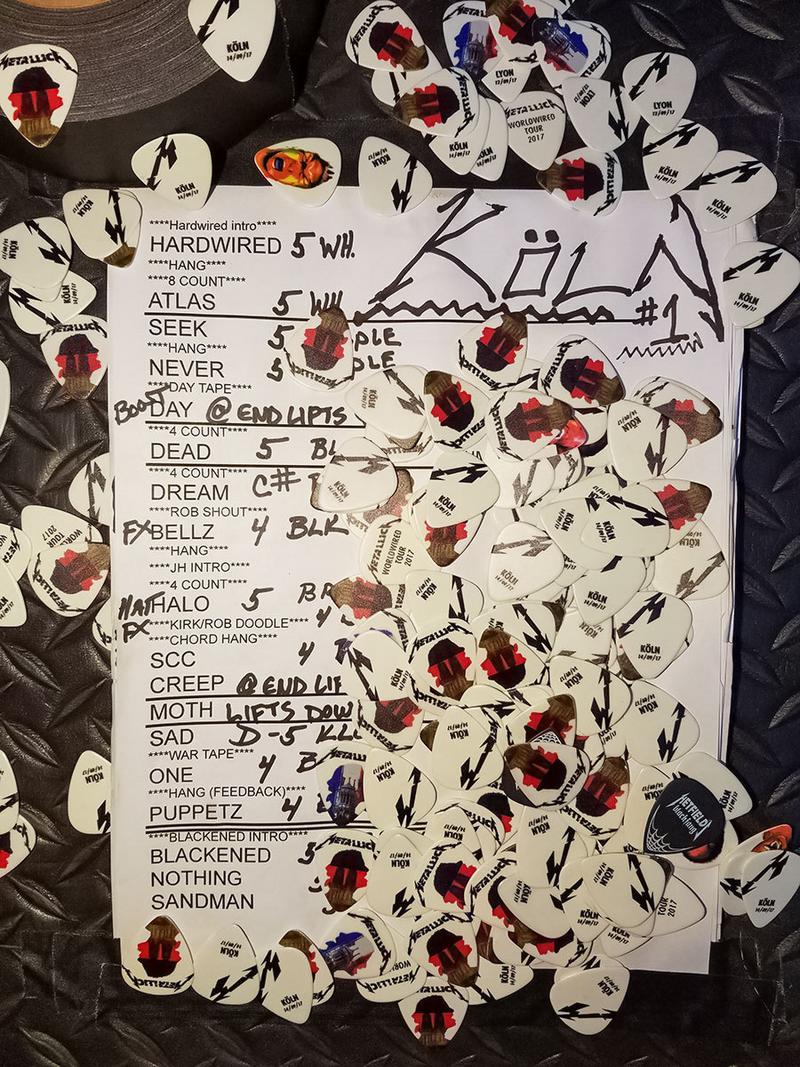 KöLN
#1
****Hardwired intro****
HARDWIRED 5 WH.
****HANG****
****8 COUNT****
ATLAS 5 WH
SEEK 5 PLE
****HANG****
NEVER 5 PLE
****DAY TAPE****
DAY @ END LIFTS
****4 COUNT****
DEAD 5 BL
****4 COUNT****
DREAM C#
****ROB SHOUT****
FX BELLZ 4 BLK
****HANG****
****JH INTRO****
****4 COUNT****
HALO 5
FX ****KIRK/ROB DOODLE**** 4
****CHORD HANG****
SCC 4
CREEP @ END LIF
MOTH LIFTS DOW
SAD D-5
****WAR TAPE****
ONE 4 B
****HANG (FEEDBACK)****
PUPPETZ 4
****BLACKENED INTRO****
BLACKENED 5
NOTHING
SANDMAN
METALLICA
KÖLN
14/09/17
LYON
12/09/17
METALLICA
WORLDWIRED
TOUR
2017
HETFIELD
blackfang